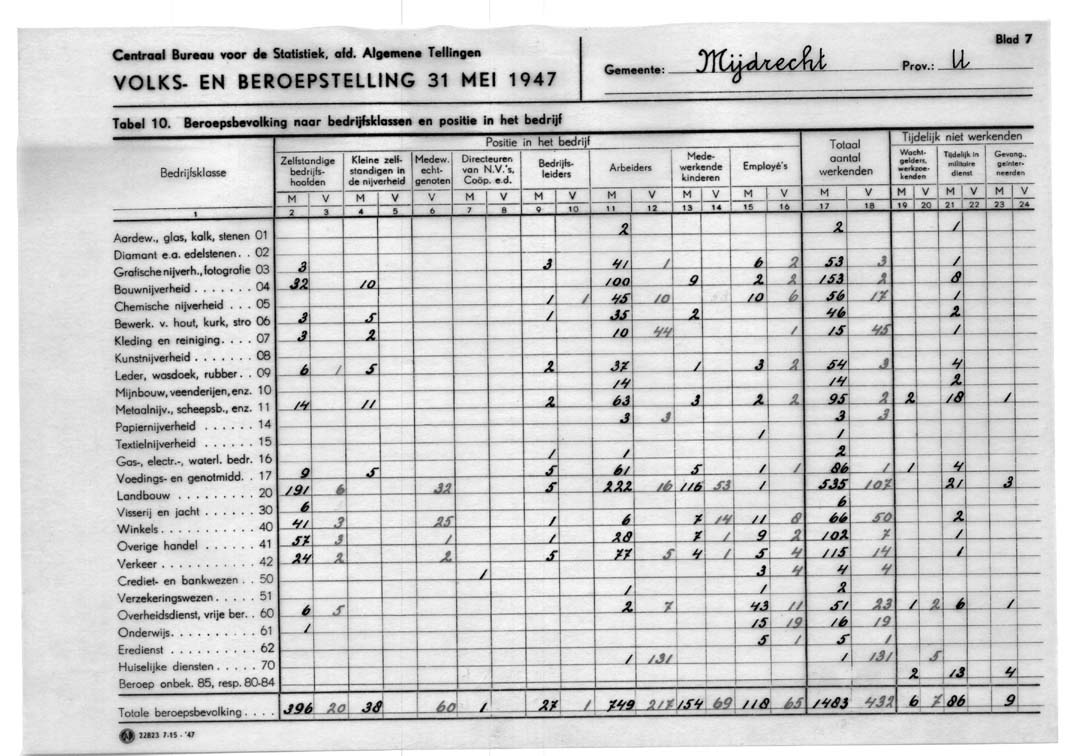 Blad 7
Centraal Bureau voor de Statistiek, afd. Algemene Tellingen
VOLKS- EN BEROEPSTELLING 31 MEI 1947
Gemeente: Mijdrecht Prov.: U
Tabel 10. Beroepsbevolking naar bedrijfsklassen en positie in het bedrijf
Bedrijfsklasse
Positie in het bedrijf
Zelfstandige bedrijfs-hoofden
Kleine zelf-standigen in de nijverheid
Medew. echt-genoten
Directeuren van N.V.'s, Coöp. e.d.
Bedrijfs-leiders
Arbeiders
Mede-werkende kinderen
Employé's
Totaal aantal werkenden
Tijdelijk niet werkenden
Wacht-gelders, werkzoe-kenden
Tijdelijk in militaire dienst
Gevang., geïnter-neerden
M V M V V M V M V M V M V M V M V M V M V M V
1 2 3 4 5 6 7 8 9 10 11 12 13 14 15 16 17 18 19 20 21 22 23 24
Aardew., glas, kalk, stenen 01 2 2 1
Diamant e.a. edelstenen . . 02
Grafische nijverh., fotografie 03 3 3 41 1 6 2 53 3 1
Bouwnijverheid . . . . . . . 04 32 10 100 9 2 2 153 2 8
Chemische nijverheid . . . 05 1 1 45 10 10 6 56 17 1
Bewerk. v. hout, kurk, stro 06 3 5 1 35 2 46 2
Kleding en reiniging . . . . 07 3 2 10 44 1 15 45 1
Kunstnijverheid . . . . . . . 08
Leder, wasdoek, rubber . . 09 6 1 5 2 37 1 3 2 54 3 4
Mijnbouw, veenderijen, enz. 10 14 14 2
Metaalnijv., scheepsb., enz. 11 14 11 2 63 3 2 2 95 2 2 18 1
Papiernijverheid . . . . . . 14 3 3 3 3
Textielnijverheid . . . . . . 15 1 1
Gas-, electr.-, waterl. bedr. 16 1 1 2
Voedings- en genotmidd. . 17 9 5 5 61 5 1 1 86 1 1 4
Landbouw . . . . . . . . . 20 191 6 32 5 222 16 116 53 1 535 107 21 3
Visserij en jacht . . . . . . 30 6 6
Winkels . . . . . . . . . . 40 41 3 25 1 6 7 14 11 8 66 50 2
Overige handel . . . . . . 41 57 3 1 1 28 7 1 9 2 102 7 1
Verkeer . . . . . . . . . . 42 24 2 2 5 77 5 4 1 5 4 115 14 1
Crediet- en bankwezen . . 50 1 3 4 4 4
Verzekeringswezen . . . . . 51 1 1 2
Overheidsdienst, vrije ber. . 60 6 5 2 7 43 11 51 23 1 2 6 1
Onderwijs . . . . . . . . . . 61 1 15 19 16 19
Eredienst . . . . . . . . . 62 5 1 5 1
Huiselijke diensten . . . . . 70 1 131 1 131 5
Beroep onbek. 85, resp. 80-84 2 13 4
Totale beroepsbevolking . . . . 396 20 38 60 1 27 1 749 217 154 69 118 65 1483 432 6 7 86 9
22823 7-15 - '47